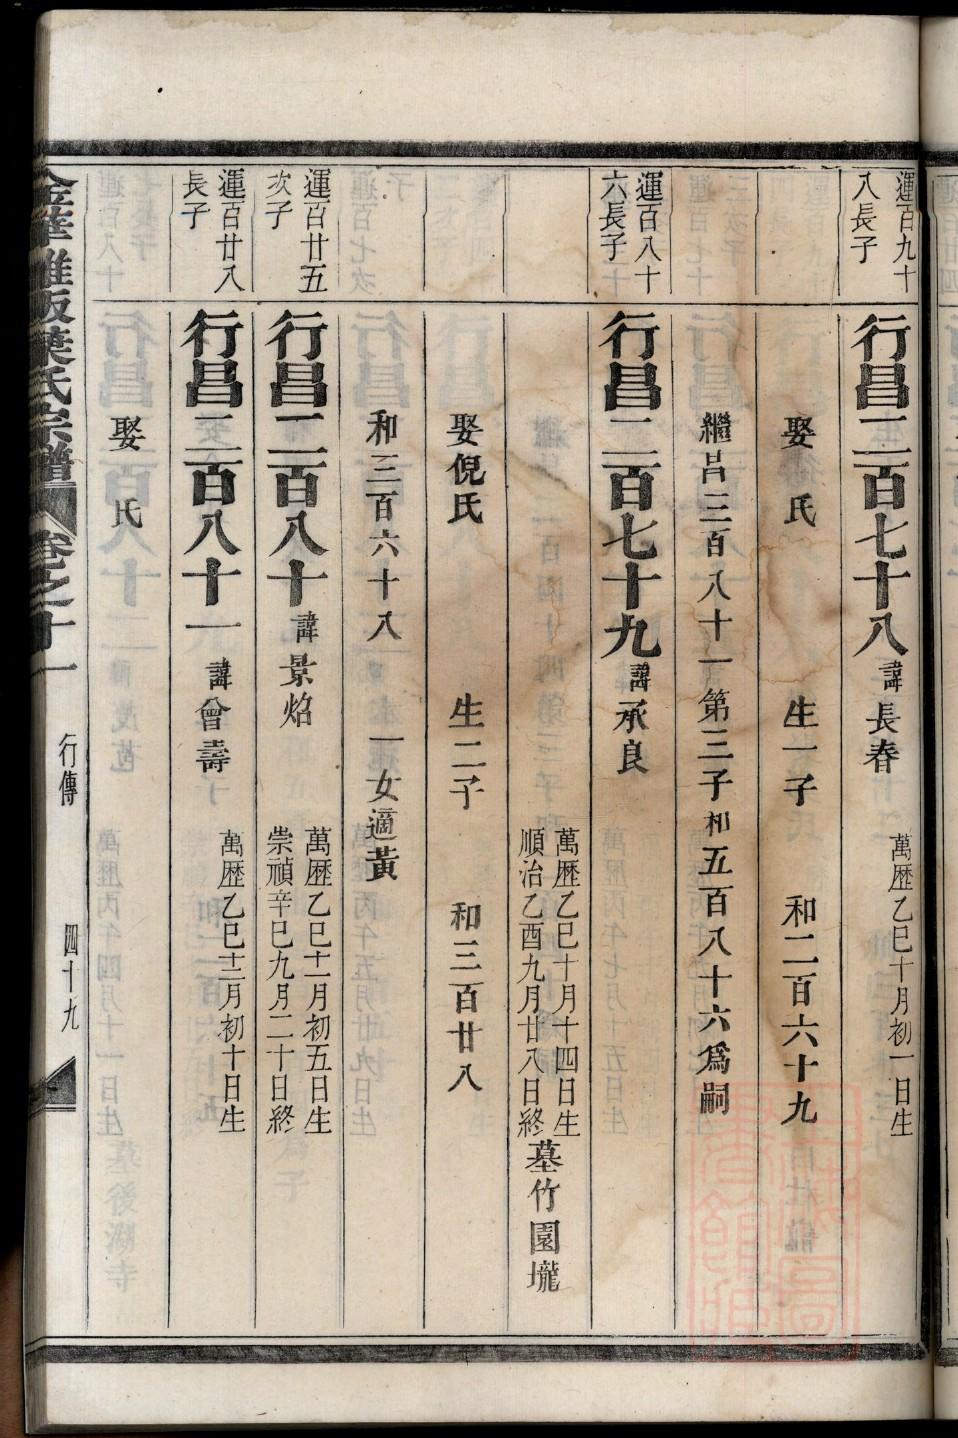 運百九十
八長子
行昌二百七十八 諱長春 萬歷乙巳十月初一日生
娶 氏 生一子 和二百六十九
繼呂三百八十一第三子和五百八十六為嗣
運百八十
六長子
行昌二百七十九 諱承良
萬歷乙巳十月十四日生
順治乙酉九月廿八日終
墓竹園壠
娶倪氏 生二子 和三百廿八
和三百六十八 一女適黃
運百廿五
次子
行昌二百八十 諱景焰
萬歷乙巳十一月初五日生
崇禎辛巳九月二十日終
運百廿八
長子
行昌二百八十一 諱會壽 萬歷乙巳十二月初十日生
娶 氏
金華雅畈葉氏宗譜 卷之十一 行傳 四十九